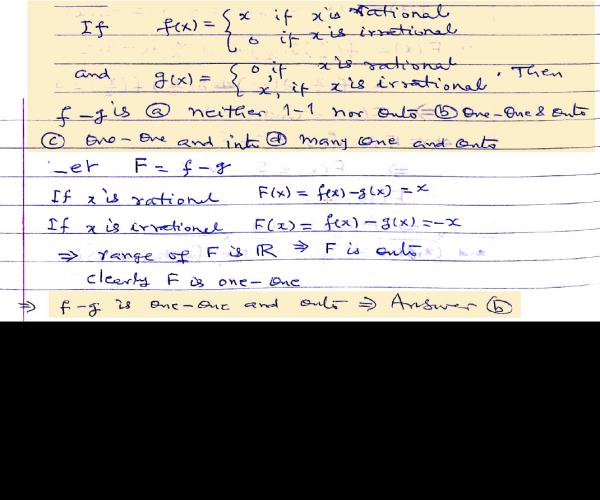 If f(x) = { x if x is rational
0 if x is irrational
and g(x) = { 0, if x is rational
x, if x is irrational. Then
f-g is ⓐ neither 1-1 nor onto ⓑ one-one & onto
ⓒ one-one and into ⓓ many one and onto
Let F = f-g
If x is rational F(x) = f(x)-g(x) = x
If x is irrational F(x) = f(x)-g(x) = -x
⇒ range of F is R ⇒ F is onto
clearly F is one-one
⇒ f-g is one-one and onto ⇒ Answer ⓑ